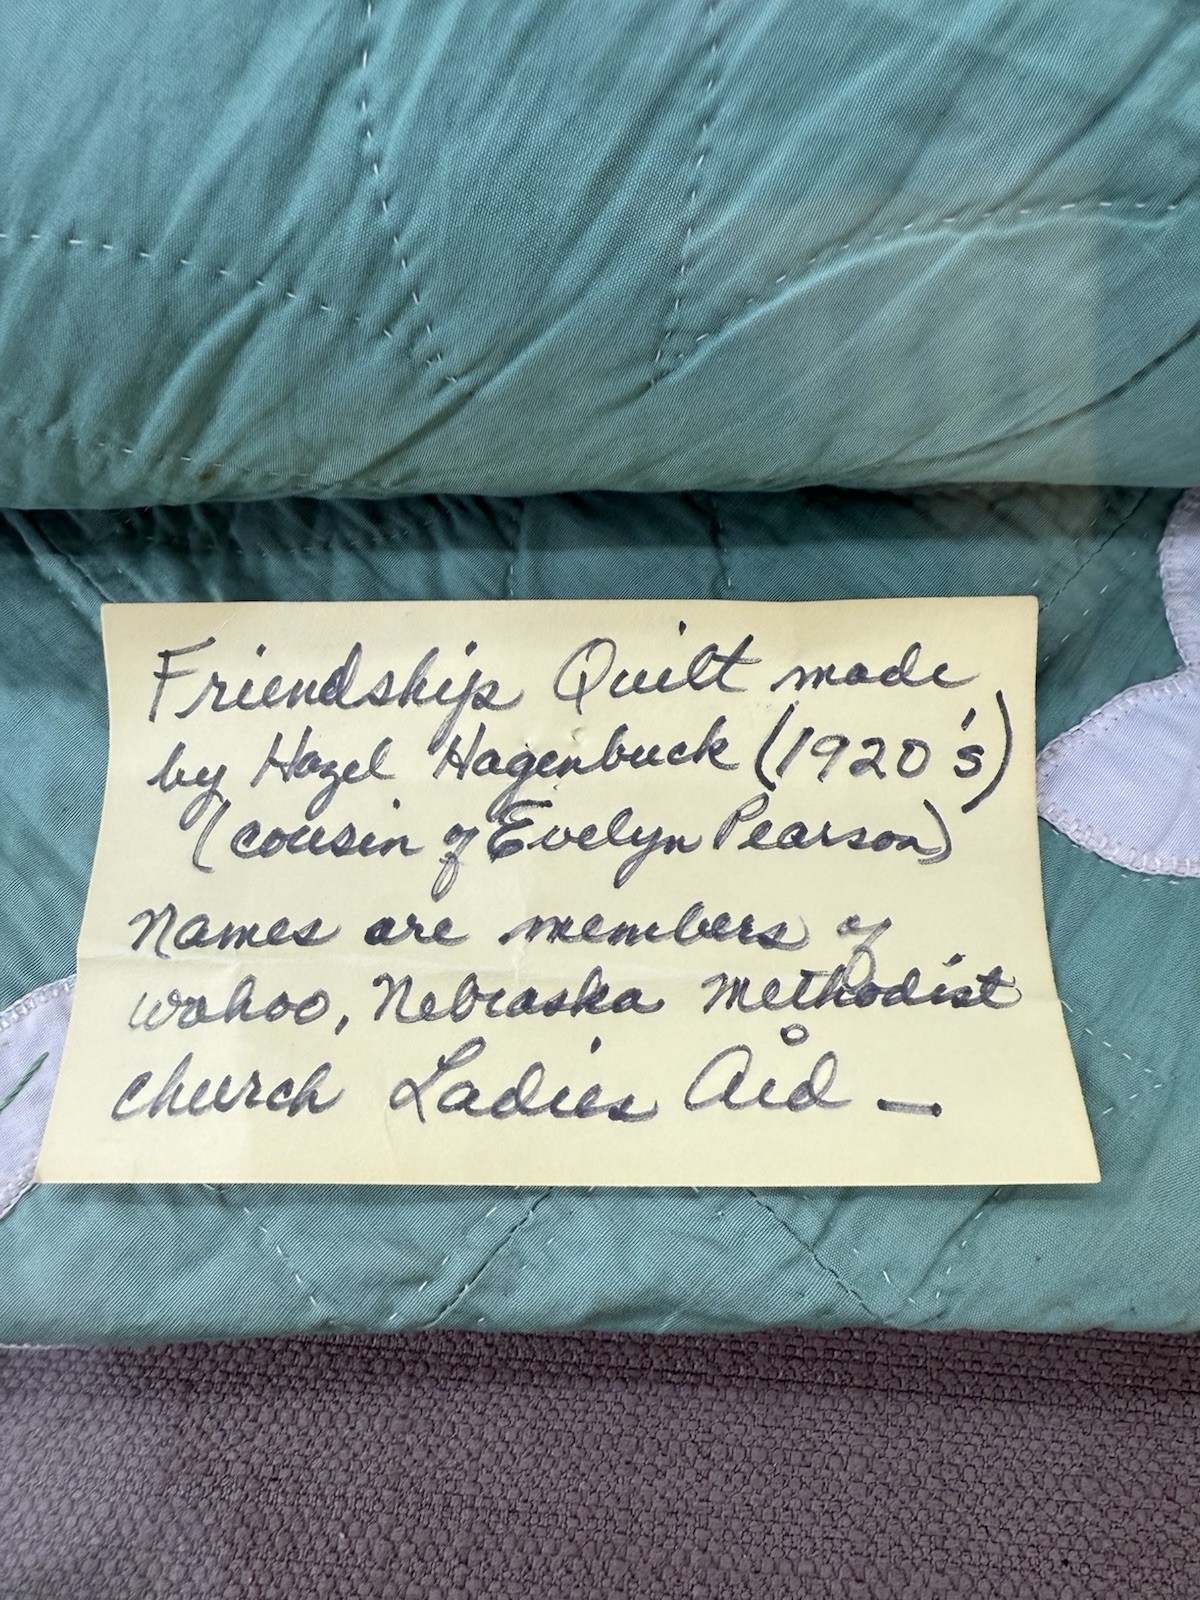 Friendship Quilt made
by Hazel Hagenbuck (1920's)
(cousin of Evelyn Pearson)
Names are members of
Wahoo, Nebraska Methodist
church Ladies Aid —